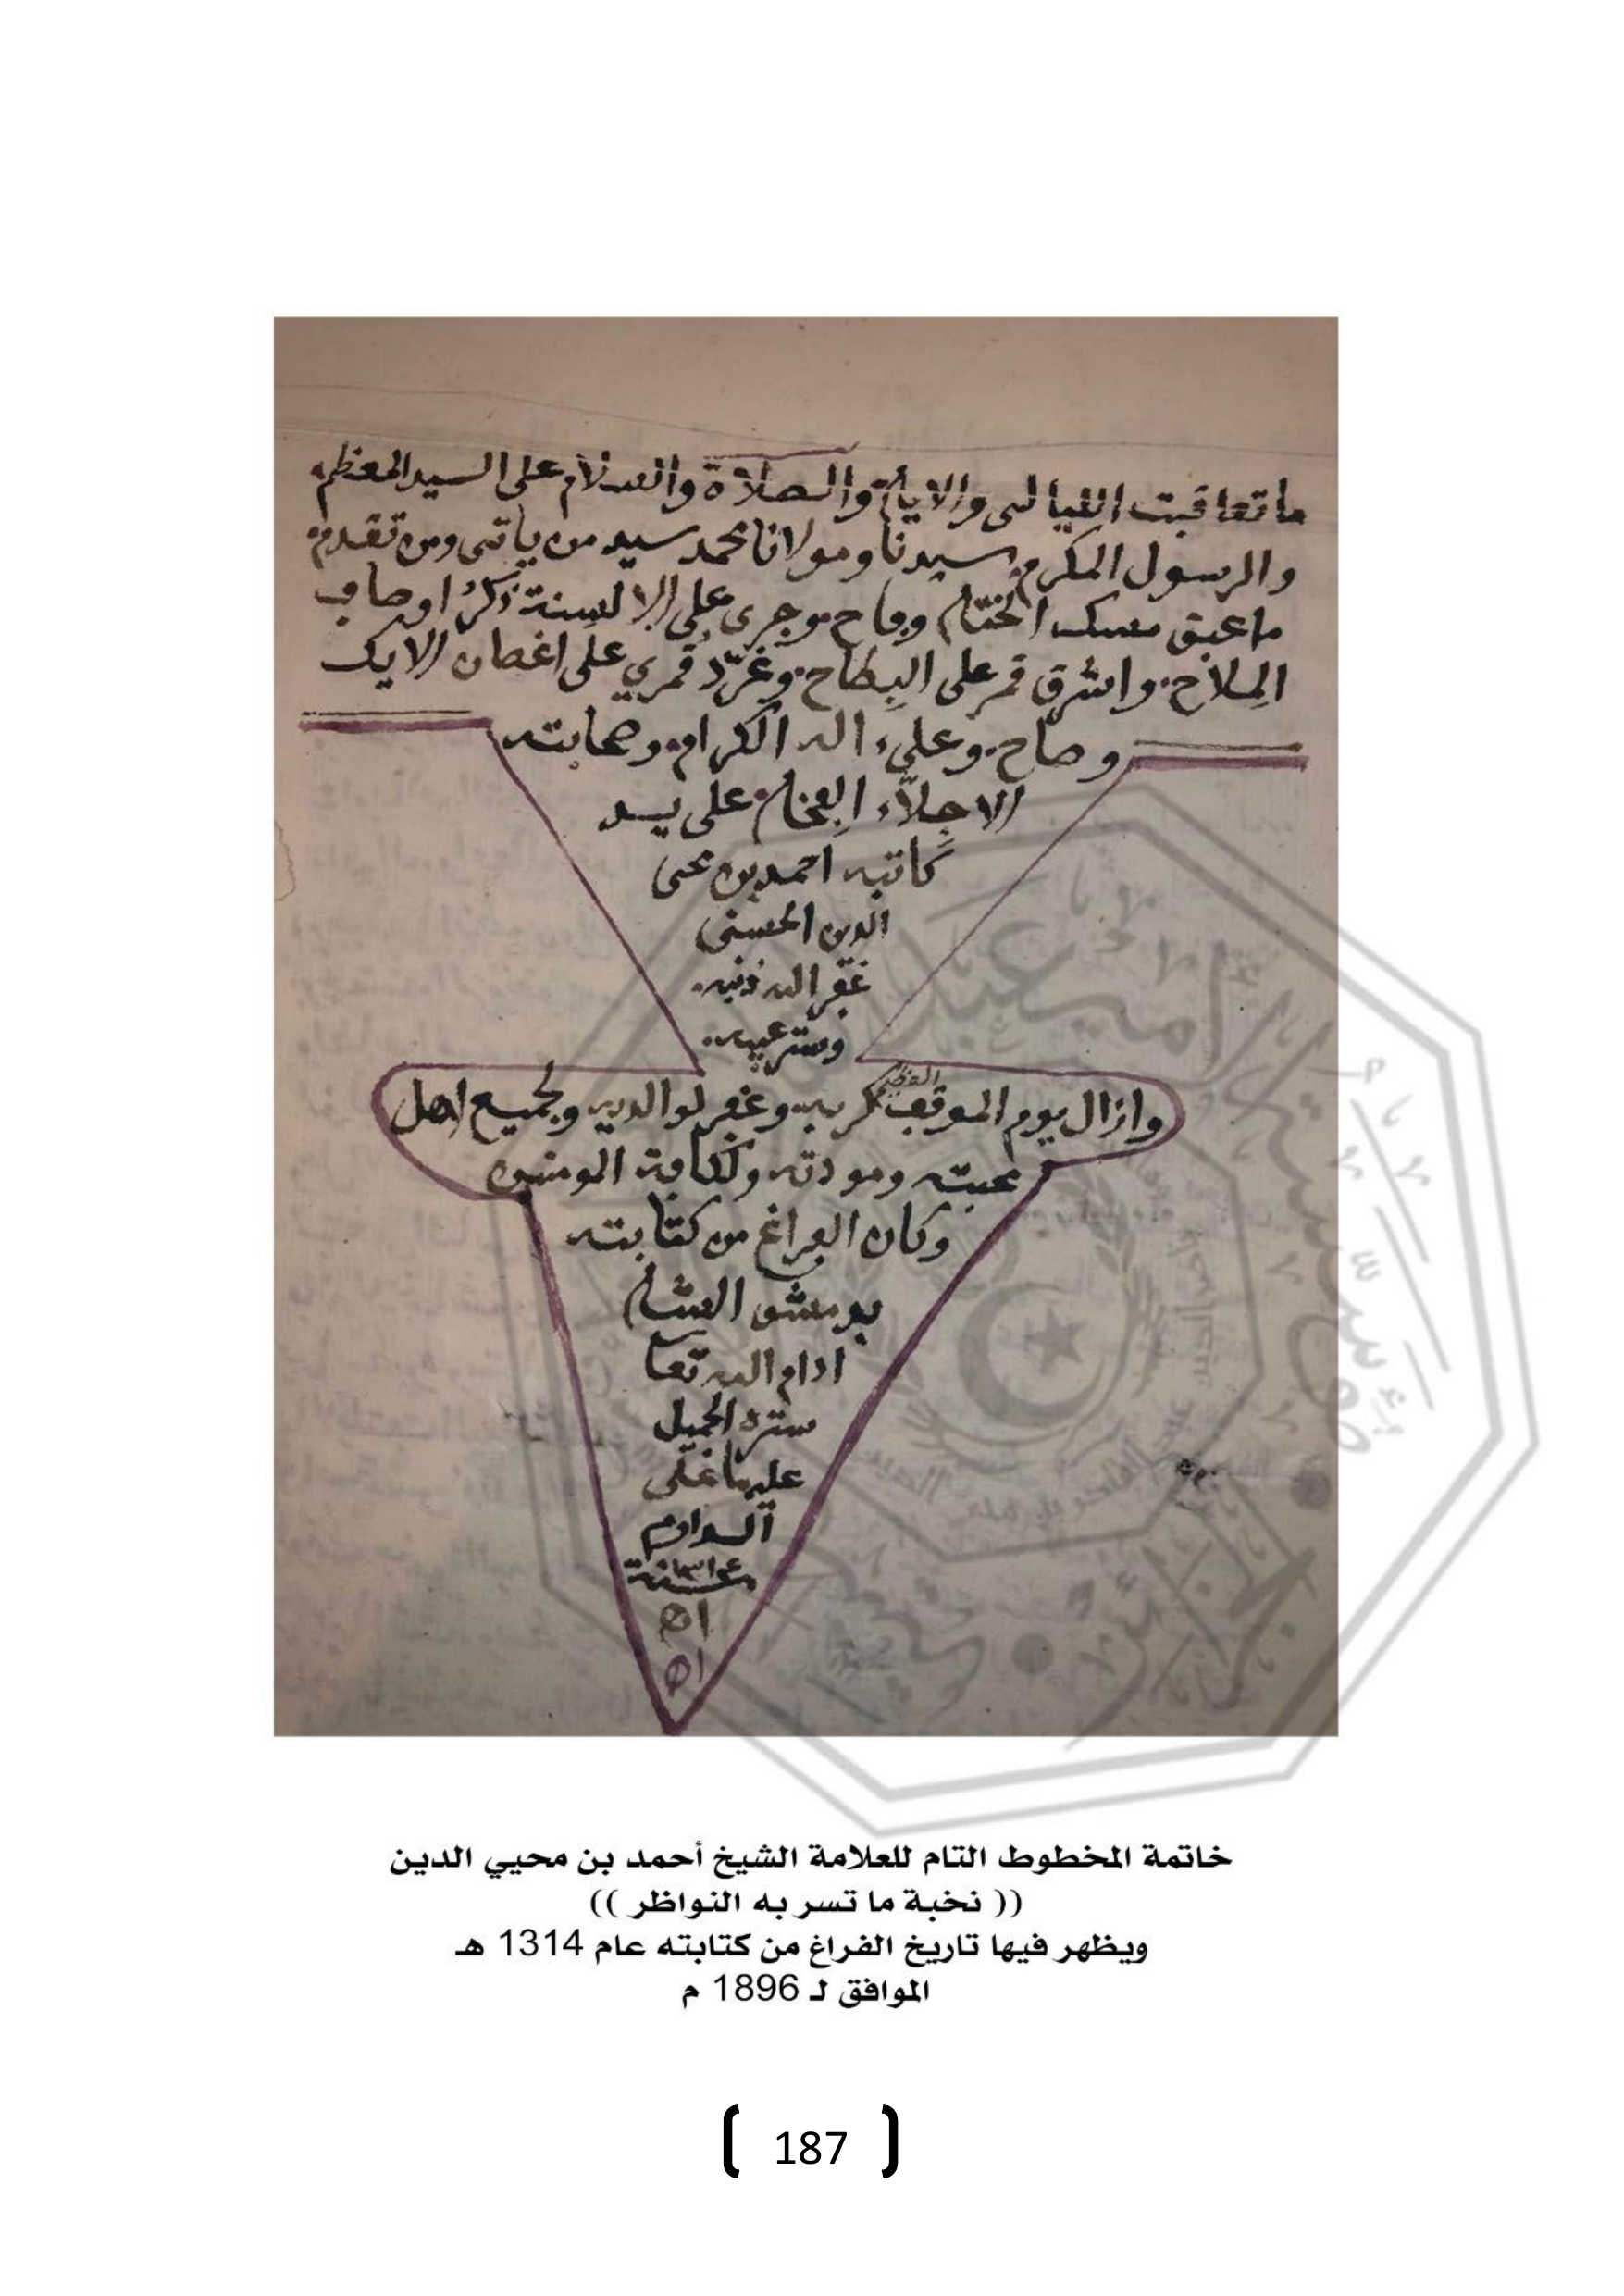 ما تعاقبت الليالى والايام والصلاة والسلام على السيد المعظم.
والرسول المكرم. سيدنا ومولانا محمد سيد من ياتى ومن تقدم.
ما عبق مسك الختام وفاح. وجرى على الالسنة ذكر اوصاف
الملاح. واشرق قمر على البطاح. وغرّد قمري على اغصان الايك
وصاح. وعلى ءاله الكرام. وصحابته
الاجلّاء الفخام. على يد
كاتبه احمد بن محى
الدين الحسنى
غفر الله ذنبه.
وستر عيبه..
وازال يوم الموقف العظيم كربه وغفر لوالديه ولجميع اهل
محبته ومودته ولكافة المومنين
وكان الفراغ من كتابته
بدمشق الشام
ادام الله تعا
ستره الجميل
عليها على
الدوام
سنة ١٣١٤
اه
اه
خاتمة المخطوط التام للعلامة الشيخ أحمد بن محيي الدين
(( نخبة ما تسر به النواظر ))
ويظهر فيها تاريخ الفراغ من كتابته عام 1314 هـ
الموافق لـ 1896 م
187